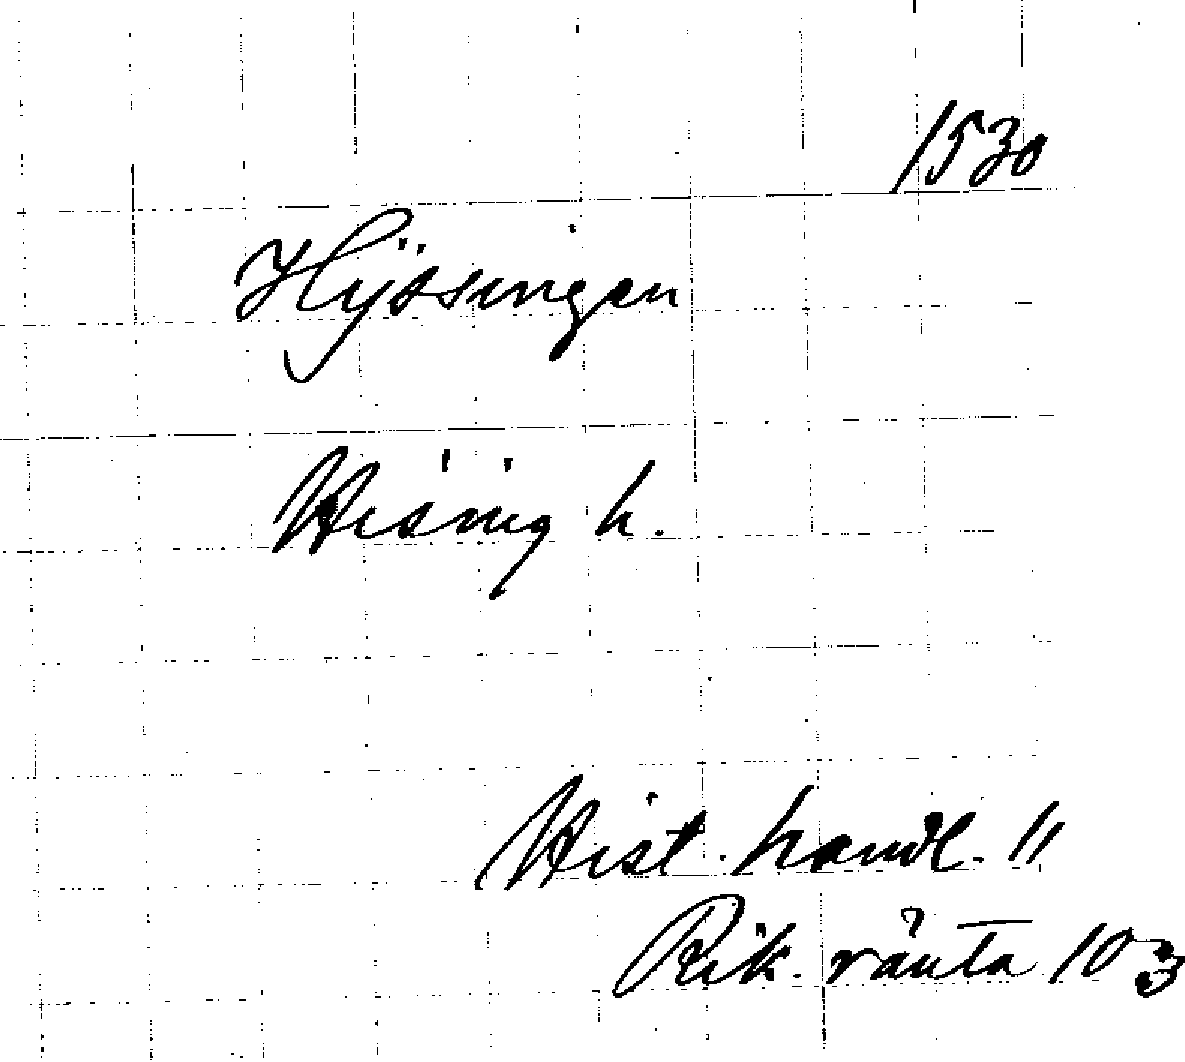 1530
Hÿssingen
Hising h.
Hist. handl. 11
Rik. ränta 103